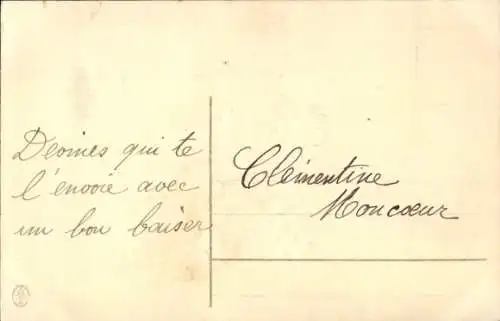 Devines qui te
l'envoie avec
un bon baiser
Clémentine
Moncœur